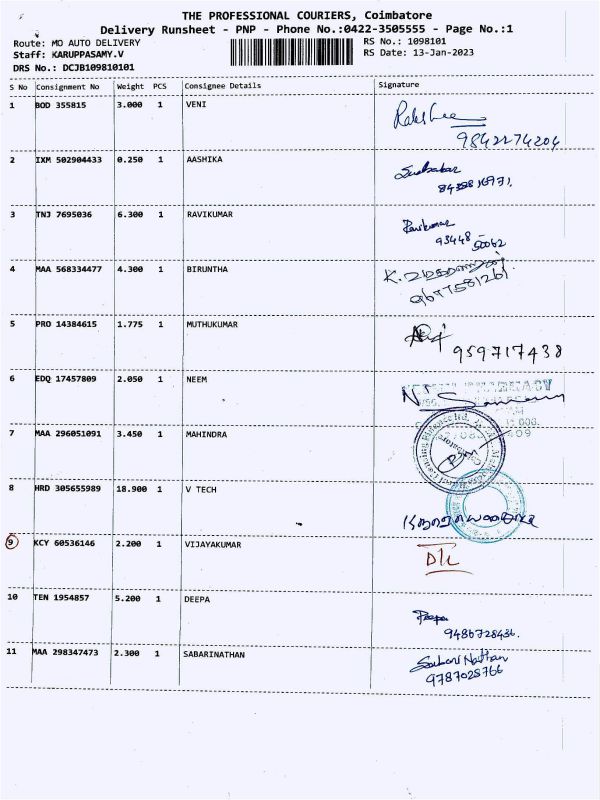 THE PROFESSIONAL COURIERS, Coimbatore
Delivery Runsheet - PNP - Phone No.:0422-3505555 - Page No.:1
Route: MO AUTO DELIVERY
RS No.: 1098101
Staff: KARUPPASAMY.V
RS Date: 13-Jan-2023
DRS No.: DCJB109810101
S No Consignment No Weight PCS Consignee Details Signature
1 BOD 355815 3.000 1 VENI
9842274204
2 IXM 502904433 0.250 1 AASHIKA
3 TNJ 7695036 6.300 1 RAVIKUMAR
Ravikumar
93448 - 50062
4 MAA 568334477 4.300 1 BIRUNTHA
9677581261
5 PRO 14384615 1.775 1 MUTHUKUMAR
959717438
6 EDQ 17457809 2.050 1 NEEM
7 MAA 296051091 3.450 1 MAHINDRA
8 HRD 305655989 18.900 1 V TECH
9 KCY 60536146 2.200 1 VIJAYAKUMAR
D/L
10 TEN 1954857 5.200 1 DEEPA
Deepa
9486728436.
11 MAA 298347473 2.300 1 SABARINATHAN
Sabari Nathan
9787028766